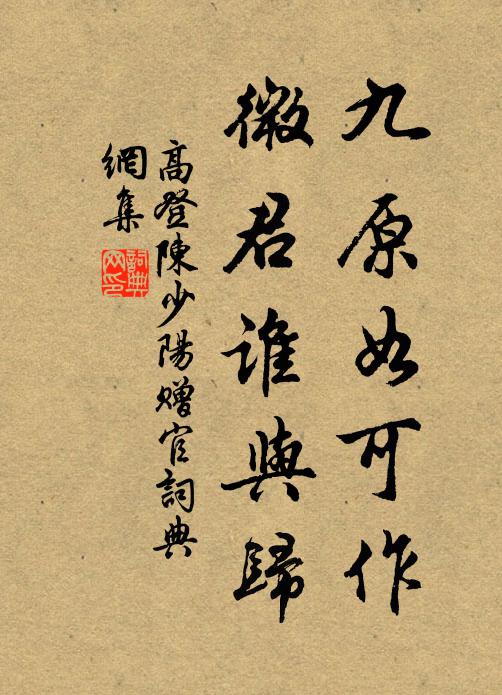 九原如可作
微君誰與歸
高登陳少陽贈官詞典
網集
詞典
网印